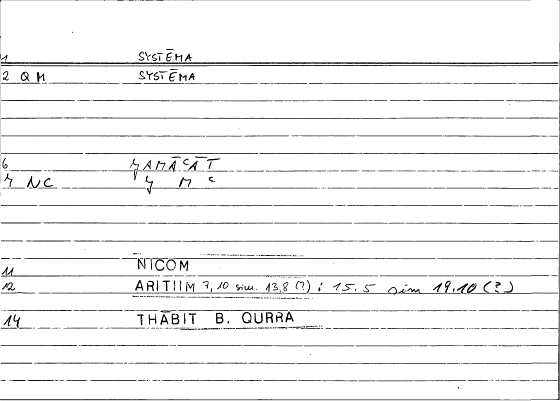 1 SYSTĒMA
2 QM SYSTĒMA
6 ǦAMĀʿĀT
7 NC Ǧ M ʿ
11 NICOM
12 ARITHM 7,10 sim. 13,8 (?) ; 15.5 sim 19.10 (?)
14 THĀBIT B. QURRA